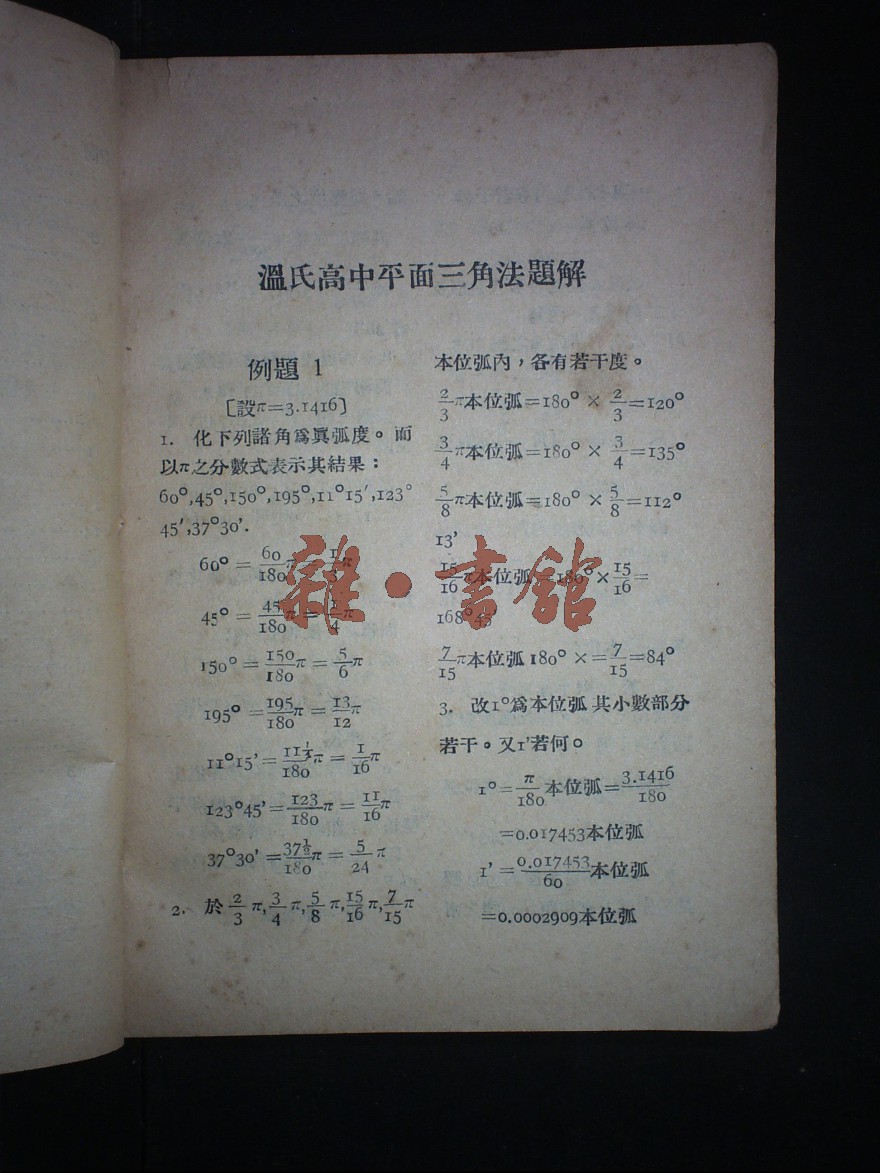 溫氏高中平面三角法題解
例題 1
[設π=3.1416]
1. 化下列諸角爲眞弧度。而
以π之分數式表示其結果：
60°,45°,150°,195°,11°15′,123°
45′,37°30′.
60° = 60/180 π = 1/3 π
45° = 45/180 π = 1/4 π
150° = 150/180 π = 5/6 π
195° = 195/180 π = 13/12 π
11°15′ = 11¼/180 π = 1/16 π
123°45′ = 123/180 π = 11/16 π
37°30′ = 37½/180 π = 5/24 π
2. 於 2/3 π, 3/4 π, 5/8 π, 15/16 π, 7/15 π
本位弧內，各有若干度。
2/3 π本位弧=180° × 2/3 =120°
3/4 π本位弧=180° × 3/4 =135°
5/8 π本位弧=180° × 5/8 =112°
13′
15/16 π本位弧=180° × 15/16 =
168°45′
7/15 π本位弧 180° ×= 7/15 =84°
3. 改1°爲本位弧 其小數部分
若干。又1′若何。
1° = π/180 本位弧 = 3.1416/180
=0.017453本位弧
1′ = 0.017453/60 本位弧
=0.0002909本位弧
雜·書館